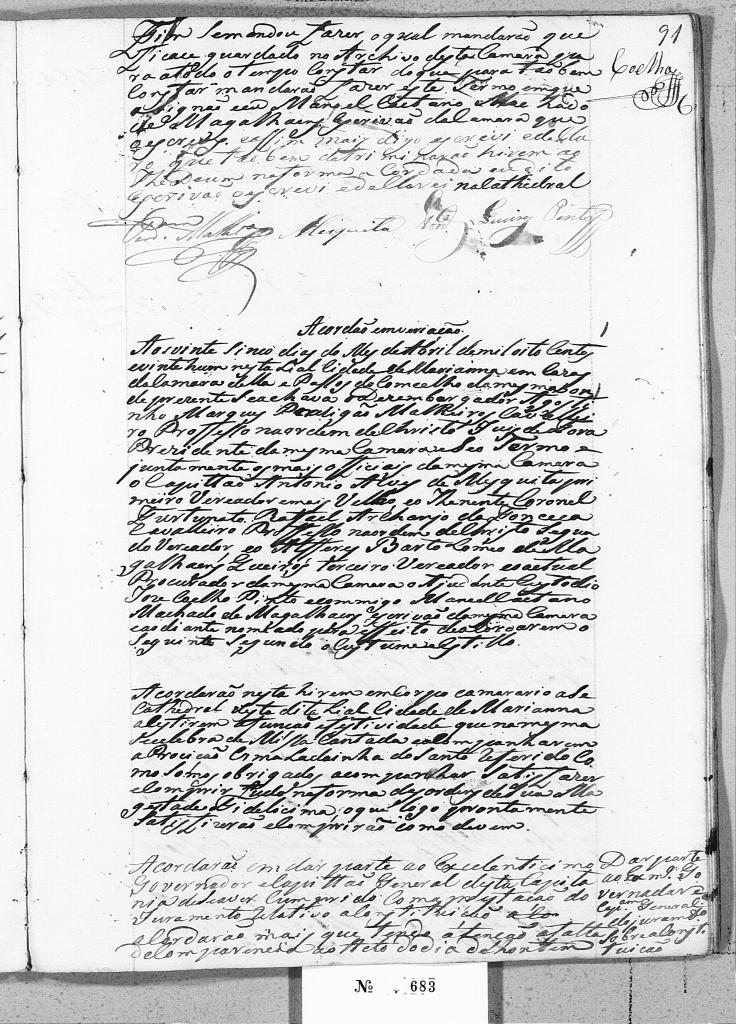 91
Coelho
Fim Se mandou fazer o qual mandarão que
ficace guardado no Archivo desta Camara pa
ra a todo o tempo Constar do que para tão bem
Constar mandarão fazer este Termo em que
asignão eu Manoel Caetano Machado
de Magalhaens Escrivão da Camara que
o escrevy e assim mais digo escrevi e decla
ro que tão bem detriminarão hirem ao
The Deum na forma a Cordada eu dito
Escrivão o escrevi e declarei na Cathedral
Mesquita Pinto
Acordão em veriação
Aos vinte Sinco dias do Mes de Abril de mil oito Centos
e vinte hum nesta Lial Cidade de Marianna em Cazas
da Camara della e Passos do Concelho da mesma aon
de prezente Se achava o Dezembargador Agosti
nho Marques Perdigão Malheiros Cavalhei
ro Professo na ordem de Christo Juis de Fora
Prezidente da mesma Camara e Seo Termo e
juntamente os mais officiais da mesma Camara
o Capittão Antonio Alves de Mesquita pri
meiro Vereador e mais Velho e o Thenente Coronel
Furtunato Rafael Archanjo da Fonceca
Cavalleiro Professo na ordem de Christo Segun
do Vereador e o Alferes Bartolomeo de Ma
galhaens Queiros terceiro Vereador e o actual
Procurador da mesma Camara o Ajudante Custodio
Joze Coelho Pinto e commigo Manoel Caetano
Machado de Magalhaens Escrivão da mesma Camara
ao diante nomeado para effeito de acordarem o
Seguinte Segundo o Custume e Estillo.
Acordarão nesta hirem em Corpo camarario a Se
Cathedral desta dita Lial Cidade de Marianna
asistirem a função e festividade que na mesma
Se celebra de Missa Cantada e acompanharem
a Procição Com a Ladainha do Santo referido Co
mo Somos obrigados acompanhar Satisfazer
e Comprir tudo na forma das ordens de Sua Ma
gestade Fidelicima, o que logo prontamente
Satisfizerão e Comprirão como devem.
Acordarão em dar parte ao Excelenticimo
Governador e Capittão General desta Capita
nia de haver Cumprido Com a prestação do
Juramento Relativo a Constituição
acordarão mais que tendo atenção a falta
de comparencia ao Acto do dia de hontem
Dar parte
ao Exmo. Go
vernador e
Capam. General
do juramto.
Sobre a Consti
tuição
No. 683